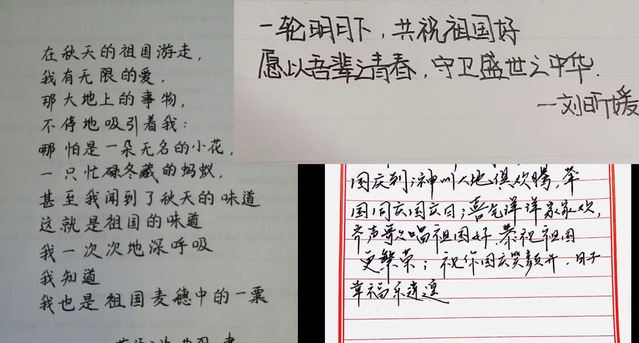 在秋天的祖国游走,
我有无限的爱,
那大地上的事物,
不停地吸引着我:
哪怕是一朵无名的小花,
一只忙碌冬藏的蚂蚁,
甚至我闻到了秋天的味道
这就是祖国的味道
我一次次地深呼吸
我知道
我也是祖国麦穗中的一票
一轮明月下,共祝祖国好
愿以吾辈之青春,守卫盛世之中华.
一刘昕媛
国庆到;神州大地俱欢腾,举
国同庆国庆日;喜气洋洋家家欢,
齐声歌唱祖国好.恭祝祖国
更繁荣;祝你国庆笑颜开,日子
幸福乐逍遥